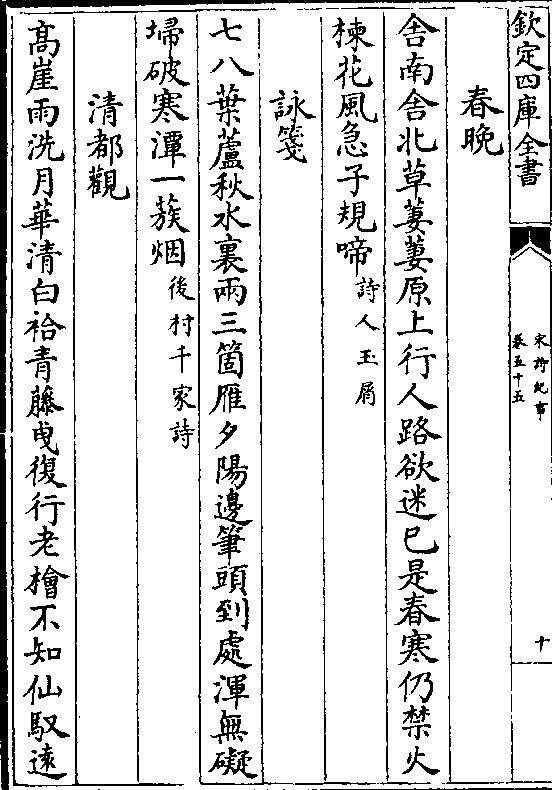 欽定四庫全書
宋詩紀事
卷五十五
十
春晩
舎南舎北草萋萋原上行人路欲迷已是春寒仍禁火
楝花風急子規啼詩人玉屑
詠箋
七八葉蘆秋水裏兩三箇雁夕陽邊筆頭到處渾無礙
埽破寒潭一簇烟後村千家詩
清都觀
髙崖雨洗月華清白袷青藤曵復行老檜不知仙馭逺